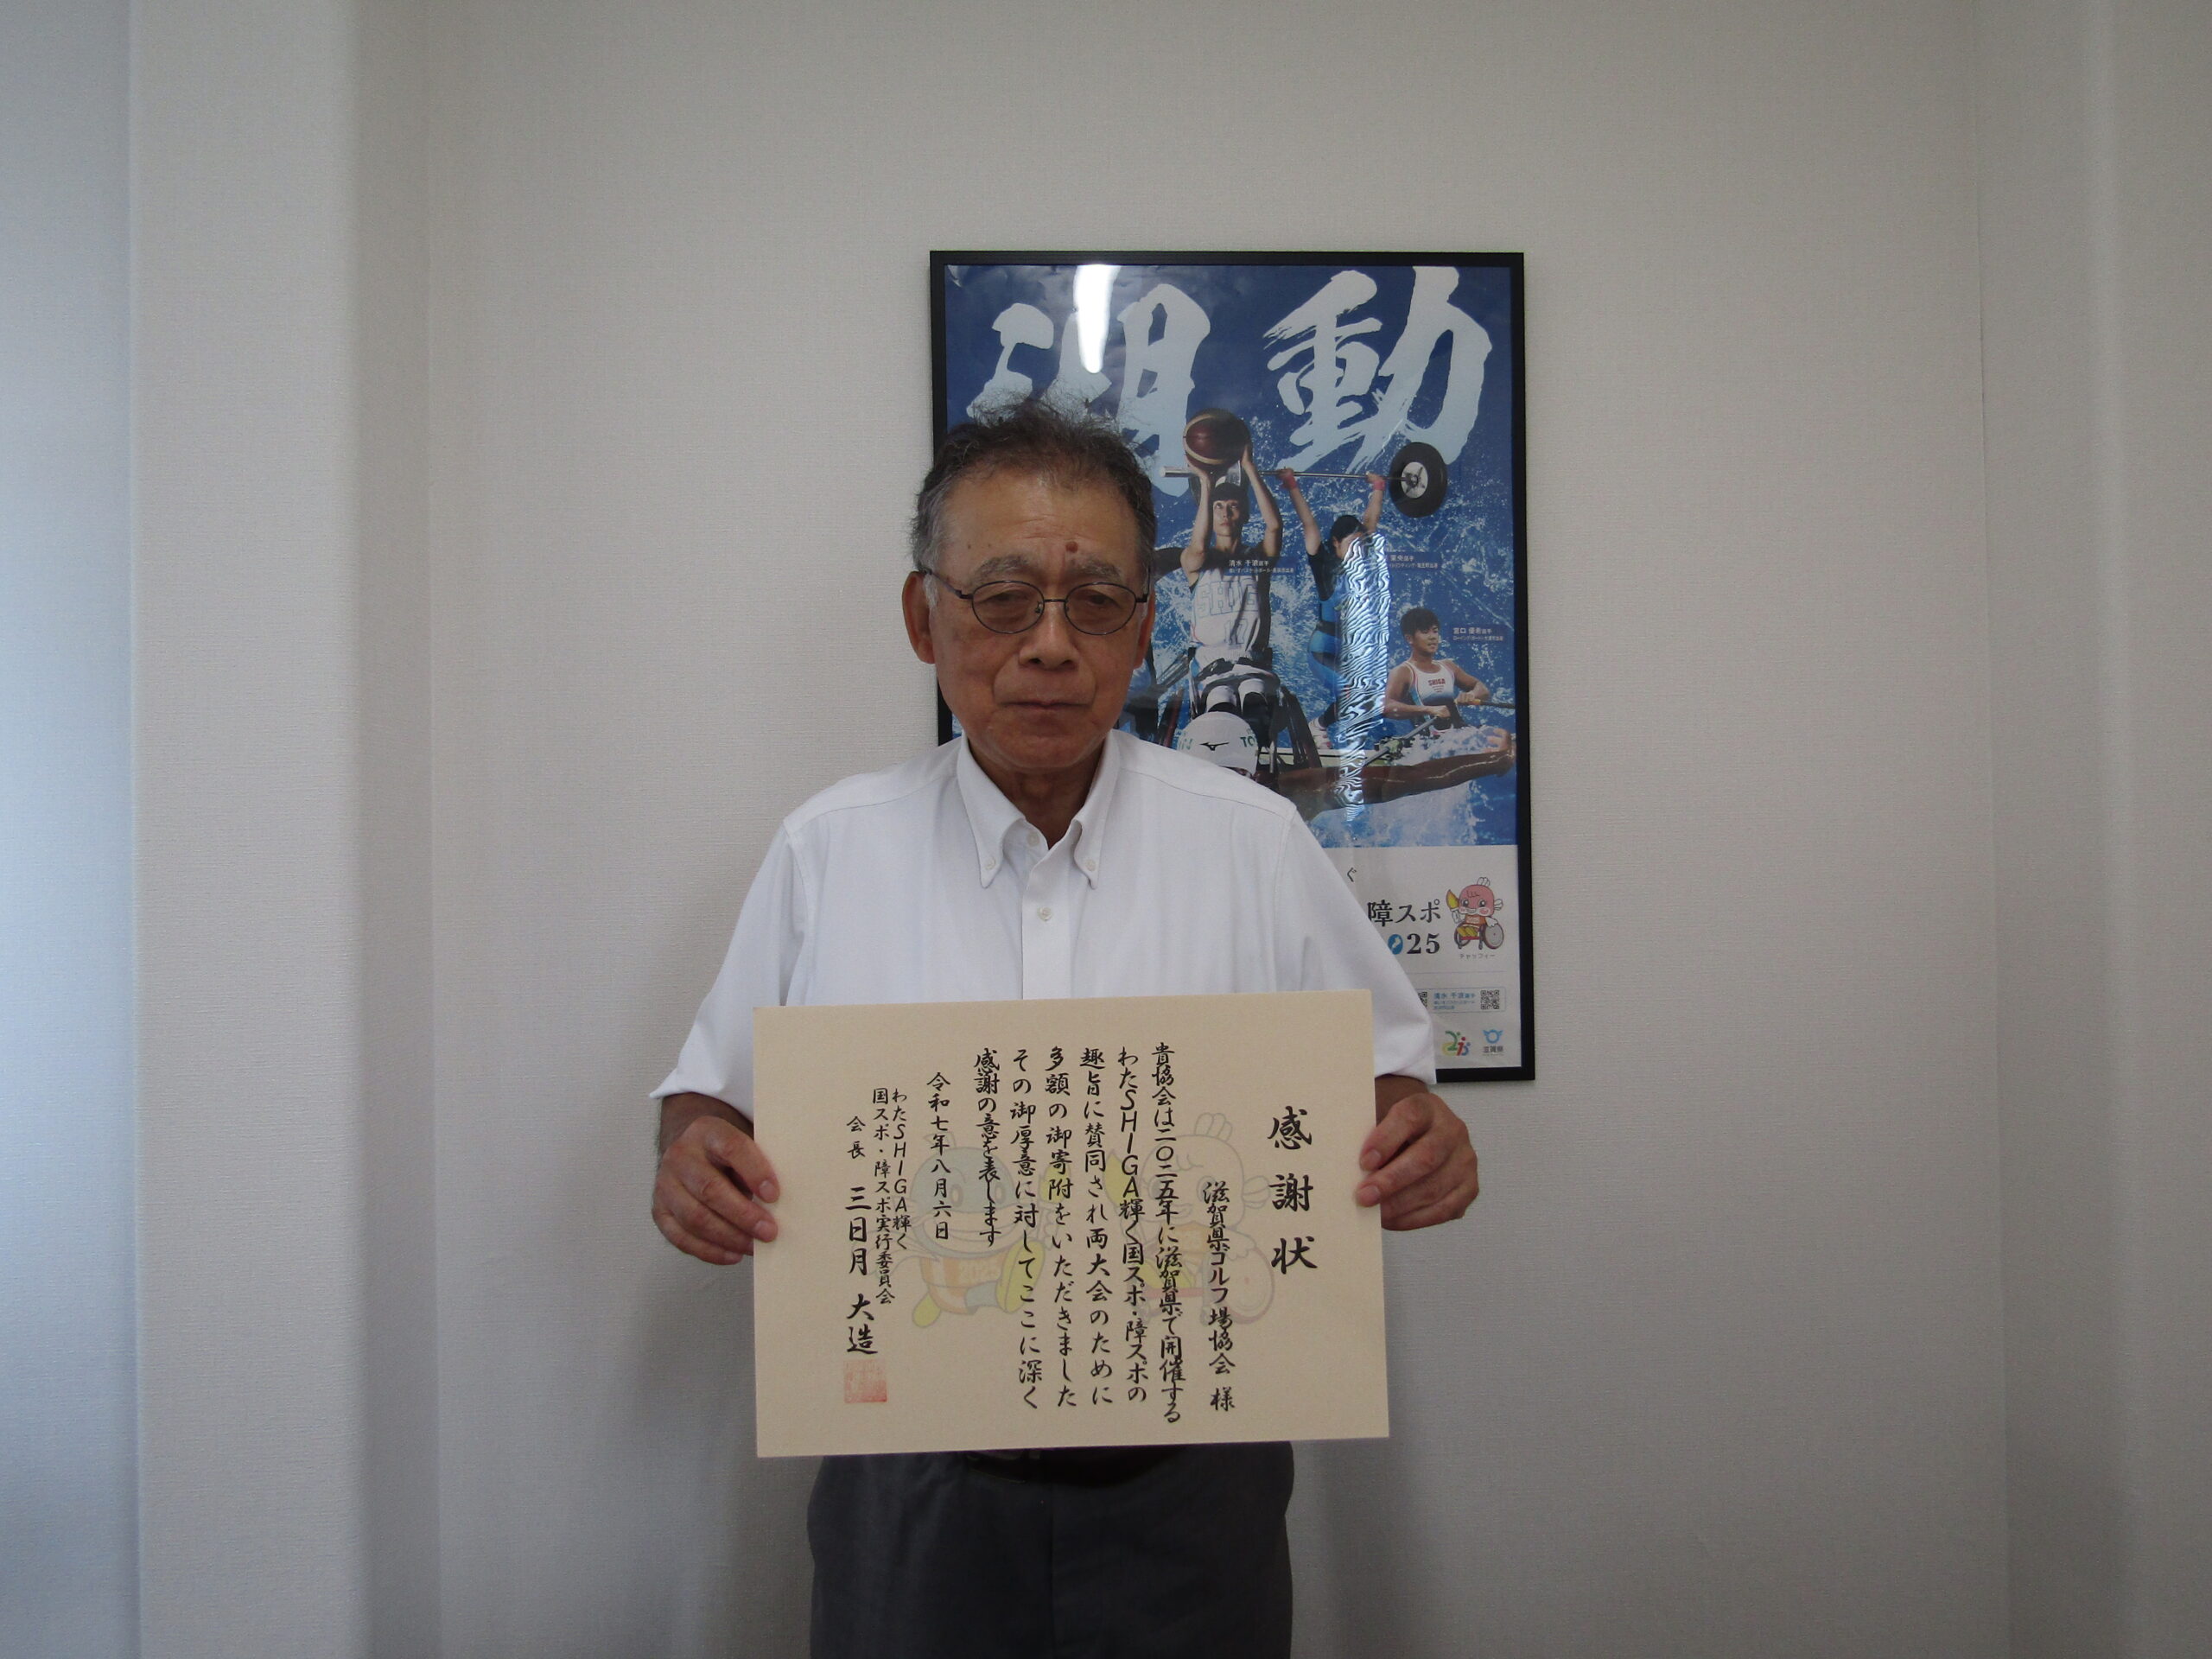 湖動
清水 千浪選手
宮口
SHIGA
ぐ
障スポ
25
チャッフィー
清水 千浪選手
滋賀県
感謝状
滋賀県ゴルフ場協会 様
貴協会は二〇二五年に滋賀県で開催する
わたSHIGA輝く国スポ・障スポの
趣旨に賛同され両大会のために
多額の御寄附をいただきました
その御厚意に対してここに深く
感謝の意を表します
令和七年八月六日
わたSHIGA輝く
国スポ・障スポ実行委員会
会長 三日月 大造